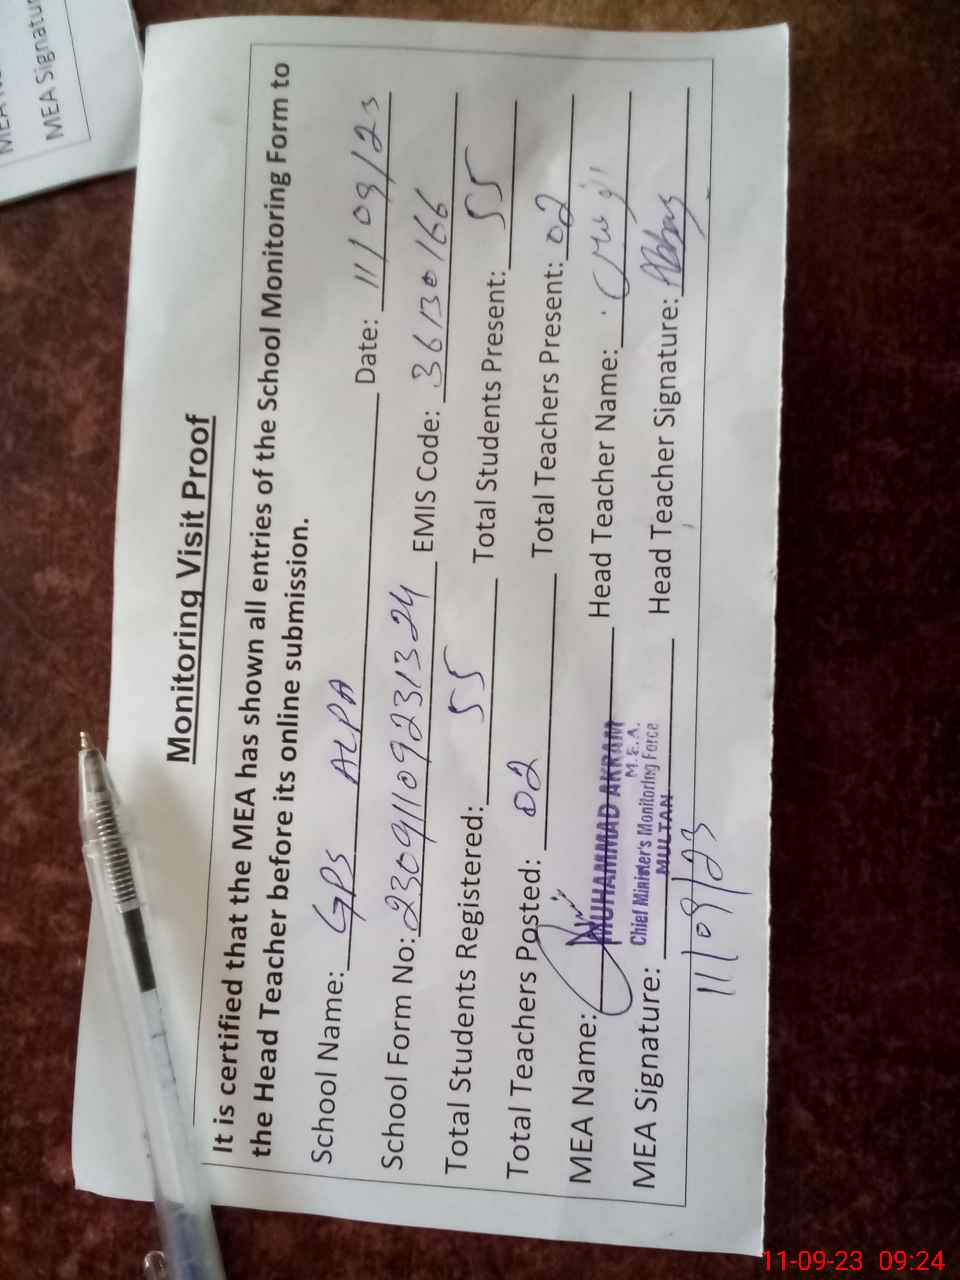 MEA Signatur
Monitoring Visit Proof
It is certified that the MEA has shown all entries of the School Monitoring Form to
the Head Teacher before its online submission.
School Name: GPS ALPA Date: 11/09/23
School Form No: 23091109231324 EMIS Code: 36130166
Total Students Registered: 55 Total Students Present: 55
Total Teachers Posted: 02 Total Teachers Present: 02
MEA Name: MUHAMMAD AKRAM Head Teacher Name:
M.E.A.
Chief Minister's Monitoring Force
MULTAN
MEA Signature: Head Teacher Signature: Abbas
11/09/23
11-09-23 09:24